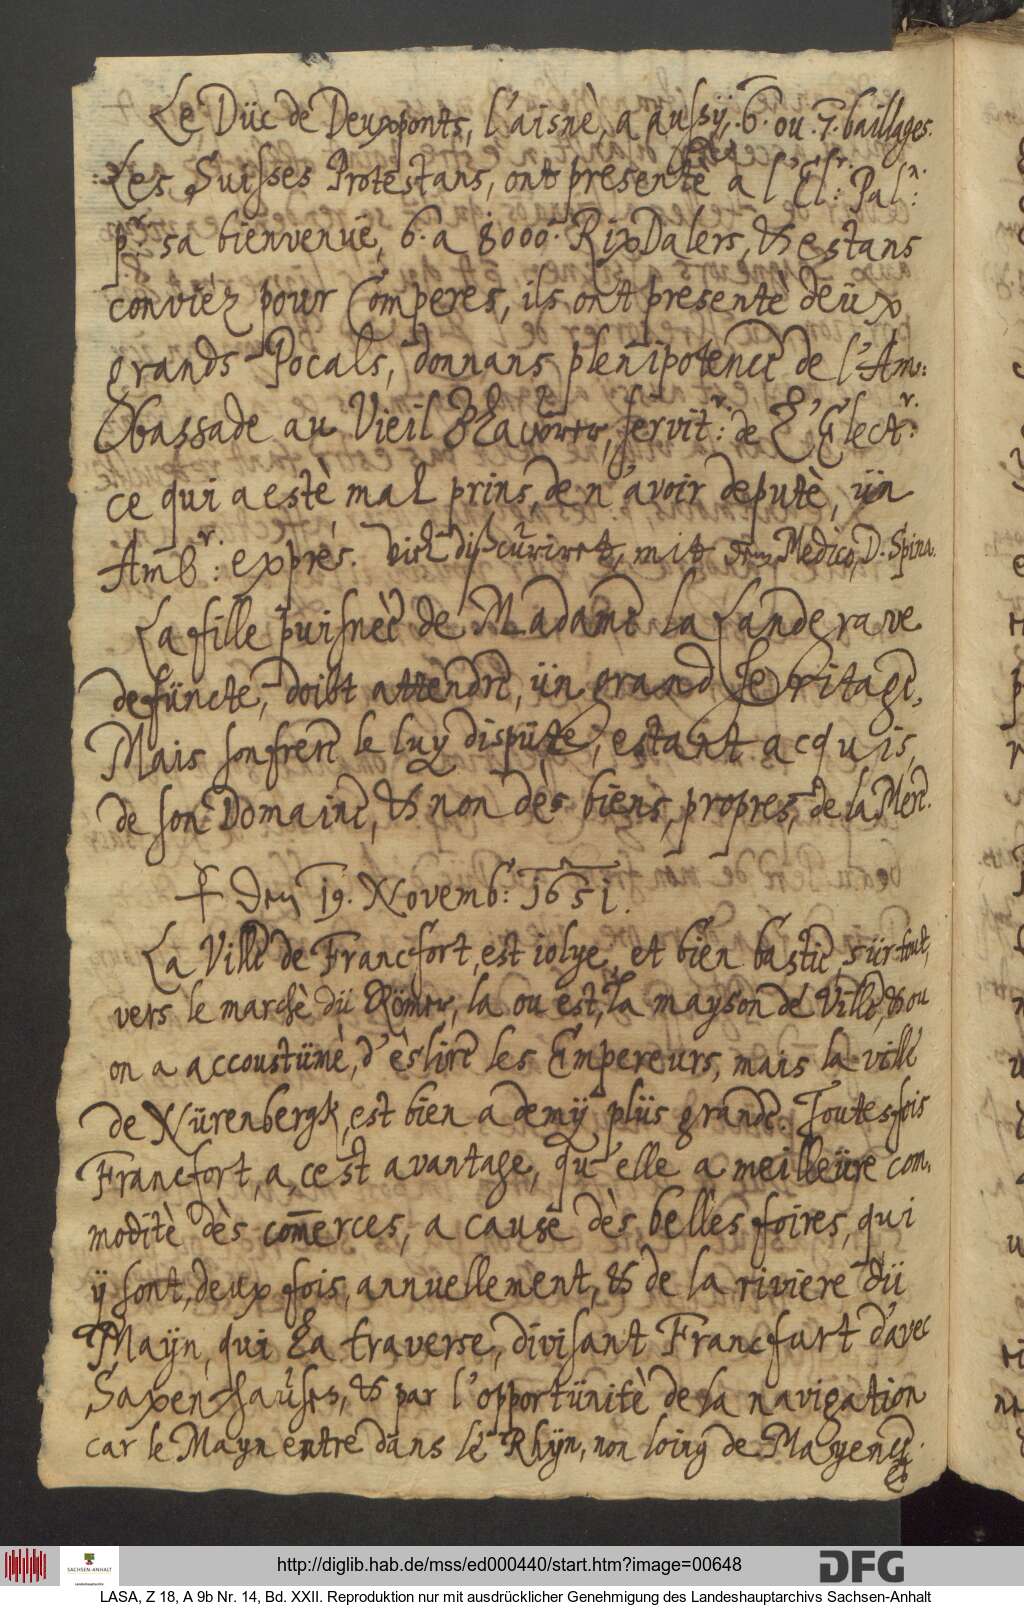 Le Düc de Deuxponts, l'aisnè, a aussÿ, 6. ou 7. baillages.
Les Suisses Protestans, ont presentè a l'El: Pal:
pr sa bienvenuë, 6. a 8000. RixDalers, & estans
convièz pour Comperes, ils ont presentè deüx
grands Pocals, donnans plenipotence de l'Am:
bassade au Vieil servitr: de L'Electr:
ce qui a estè mal prins, de n'avoir deputè, ün
Ambr: exprès. Viel discuriret, mit dem Medico, D. Spina.
La fille puisnèe de Madame la Landgrave
defüncte, doibt attendre, ün grand Heritage,
Mais son frere le luy dispüte, estant acquis,
de son Domaine, & non dès biens, propres, de la Mere.
den 19. Novemb: 1651.
La Ville de Francfort, est iolye, et bien bastie, sür tout,
vers le marchè dü Römer, la ou est, la mayson de Ville, & ou
on a accoustümè, d'èslire les Empereurs, mais la ville
de Nürenbergk, est bien a demÿ plüs grande. Toutesfois
Francfort, a, cest avantage, qu'elle a meilleüre com,
moditè dès comerces, a cause dès belles foires, qui
ÿ sont, deux fois, annuellement, & de la riviere dü
Maÿn, qui la traverse, divisant Francfurt d'avec
Saxenhausen, & par l'opportünitè de la navigation
car le Mayn entre dans le Rhÿn, non loing de Mayence.
et
http://diglib.hab.de/mss/ed000440/start.htm?image=00648
DFG
SACHSEN-ANHALT
Landeshauptarchiv
LASA, Z 18, A 9b Nr. 14, Bd. XXII. Reproduktion nur mit ausdrücklicher Genehmigung des Landeshauptarchivs Sachsen-Anhalt